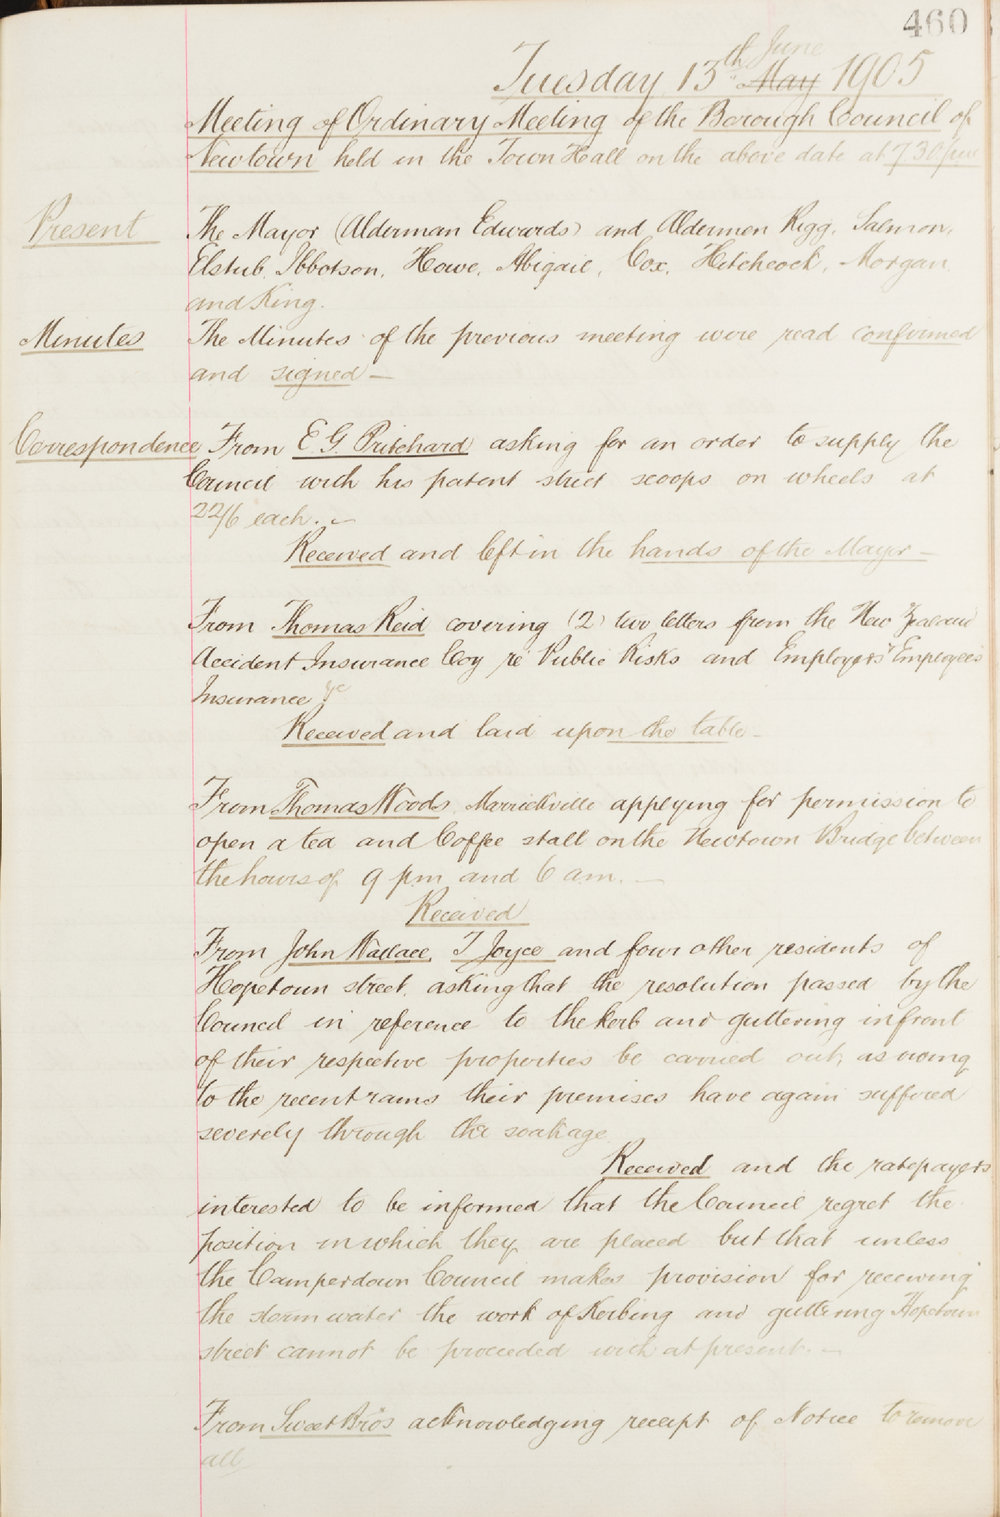 460
Tuesday 13th June May 1905
Meeting of Ordinary Meeting of the Borough Council of
Newtown held in the Town Hall on the above date at 7.30 pm
Present The Mayor (Alderman Edwards) and Aldermen Rigg, Salmon,
Elstub, Ibbotson, Howe, Abigail, Cox, Hitchcock, Morgan
and King.
Minutes The Minutes of the previous meeting were read confirmed
and signed —
Correspondence From E. G. Pritchard asking for an order to supply the
Council with his patent street scoops on wheels at
22/6 each. —
Received and left in the hands of the Mayor —
From Thomas Reid covering (2) two letters from the New Zealand
Accident Insurance Coy re Public Risks and Employers & Employees
Insurance &c
Received and laid upon the table —
From Thomas Woods, Marrickville applying for permission to
open a tea and Coffee stall on the Newtown Bridge between
the hours of 9 pm and 6 am. —
Received
From John Wallace, T Joyce and four other residents of
Hopetoun street, asking that the resolution passed by the
Council in reference to the kerb and guttering in front
of their respective properties be carried out, as owing
to the recent rains their premises have again suffered
severely through the soakage
Received and the ratepayers
interested to be informed that the Council regret the
position in which they are placed but that unless
the Camperdown Council makes provision for receiving
the storm water the work of Kerbing and guttering Hopetoun
street cannot be proceeded with at present. —
From Sweet Bros acknowledging receipt of Notice to remove
all